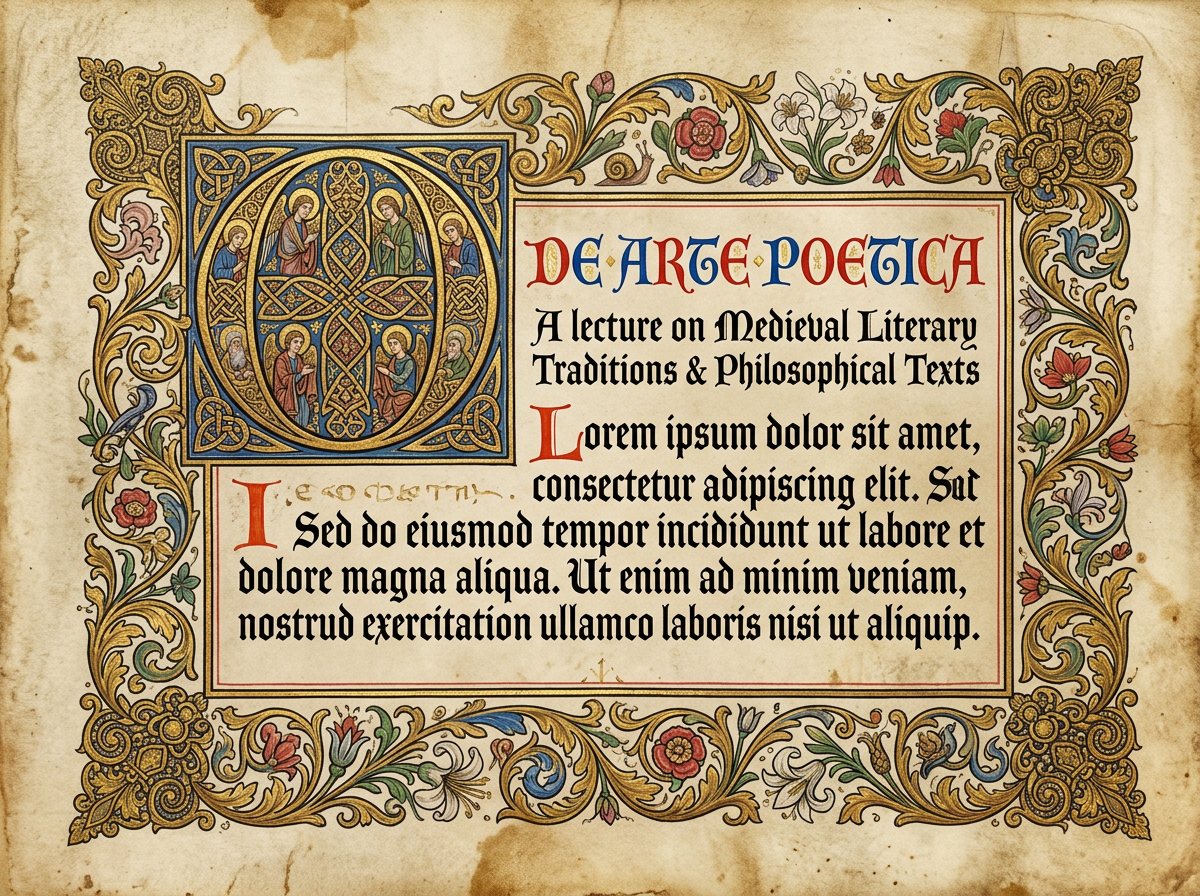 DE·ARTE·POETICA
A lecture on Medieval Literary
Traditions & Philosophical Texts
Lorem ipsum dolor sit amet,
consectetur adipiscing elit. Sat
I
Sed do eiusmod tempor incididunt ut labore et
dolore magna aliqua. Ut enim ad minim veniam,
nostrud exercitation ullamco laboris nisi ut aliquip.